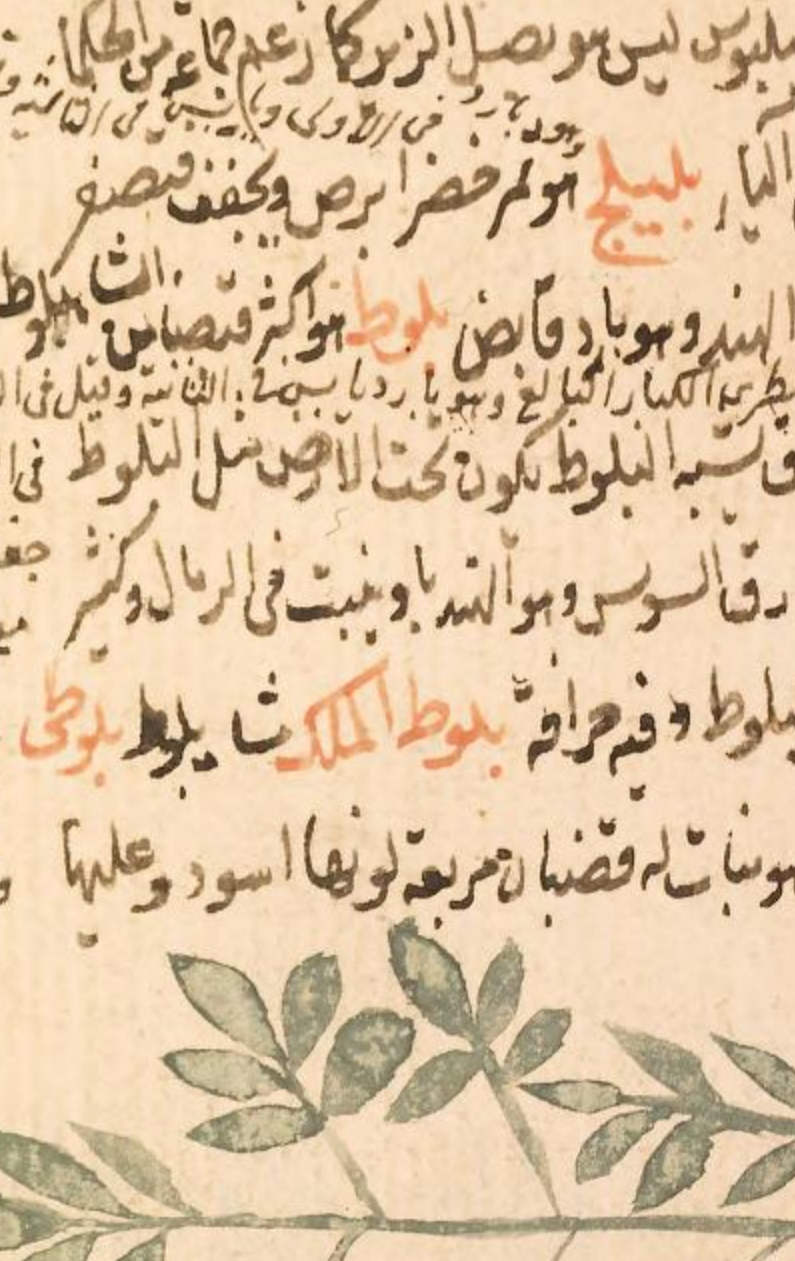 بلبوس ليس هو بصل الزير كما زعم جماعة من الحكما
بارد في الاولى يابس في الثانية
النار بليلج هو ثمر خضرا برص ويجفف فيصفر
الهند وهو بارد قابض بلوط هو اكثر قبضا من الشابلوط
وهو بارد يابس في الثانية وقيل في
يشبه البلوط يكون تحت الارض مثل البلوط في
ورق السوس وهو الهندبا وينبت في الرمال وكثير
بلوط وفيه حرافة بلوط الملك شابلوط بلوطي
هو نبات له قضبان مربعة لونها اسود وعليها